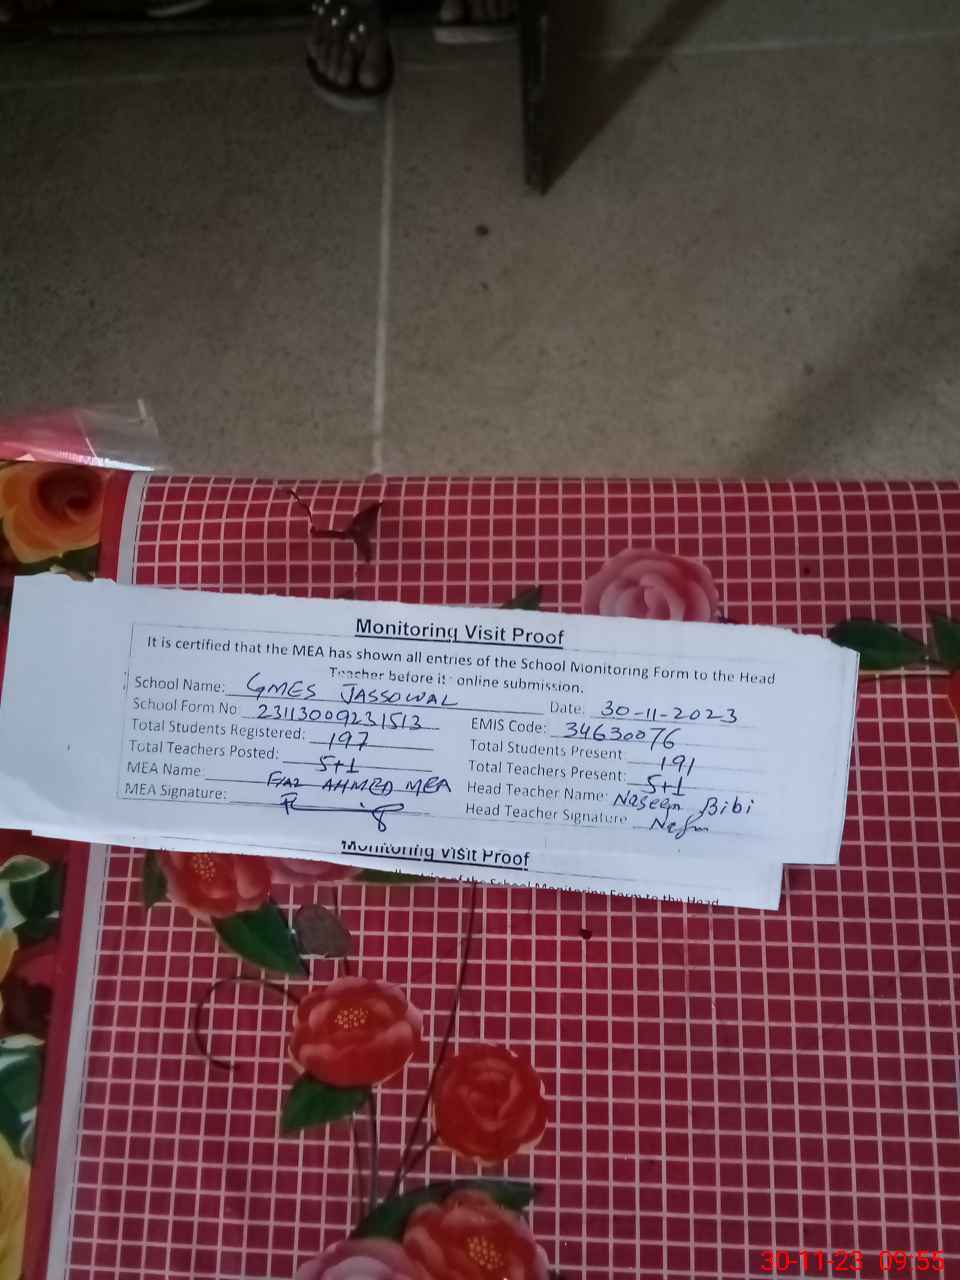 Monitoring Visit Proof
It is certified that the MEA has shown all entries of the School Monitoring Form to the Head
Teacher before it online submission.
School Name: GMES JASSOWAL Date: 30-11-2023
School Form No: 23113009231513 EMIS Code: 34630076
Total Students Registered: 197 Total Students Present: 191
Total Teachers Posted: 5+1 Total Teachers Present: 5+1
MEA Name: AHMED MEA Head Teacher Name: Naseem Bibi
MEA Signature: Head Teacher Signature
Monitoring Visit Proof
of the School Monitoring Form to the Head
30-11-23 09:55